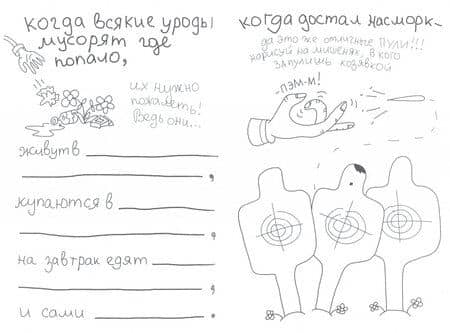 когда всякие уроды
мусорят где
попало,
их нужно
пожалеть!
Ведь они...
живут в
,
купаются в
,
на завтрак едят
,
и сами .
когда достал насморк -
да это же отличные пули!!!
нарисуй на мишенях, в кого
запулишь козявкой
пэм-м!